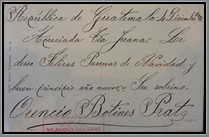 República de Guatemala 4 Diciembre
Apreciada Tía Juana. Les
deseo Felices Pascuas de Navidad, y
buen principio año nuevo. Su sobrino.
Orencio Botines Prat